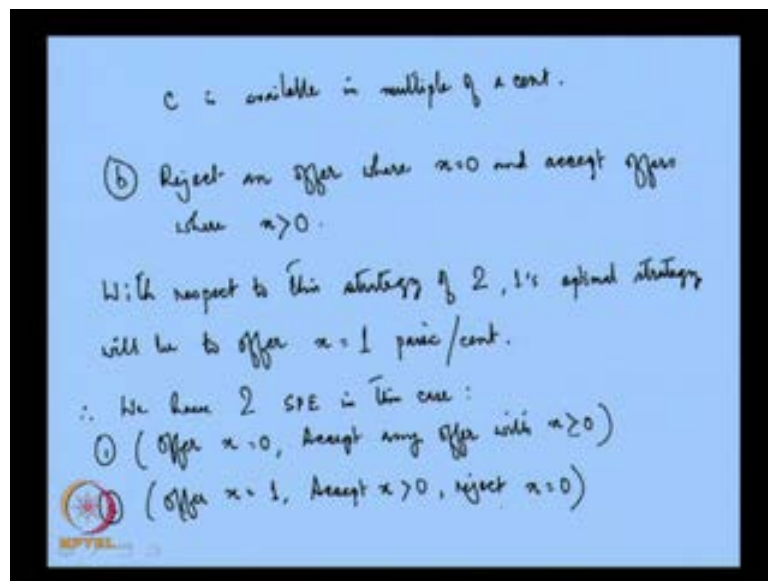 C is available in multiple of a cent.
(b) Reject an offer where x=0 and accept offers
where x>0.
With respect to this strategy of 2, 1's optimal strategy
will be to offer x = 1 paise/cent.
∴ We have 2 SPE in this case:
(1) (Offer x=0, Accept any offer with x≥0)
(offer x=1, Accept x>0, reject x=0)
NPTEL